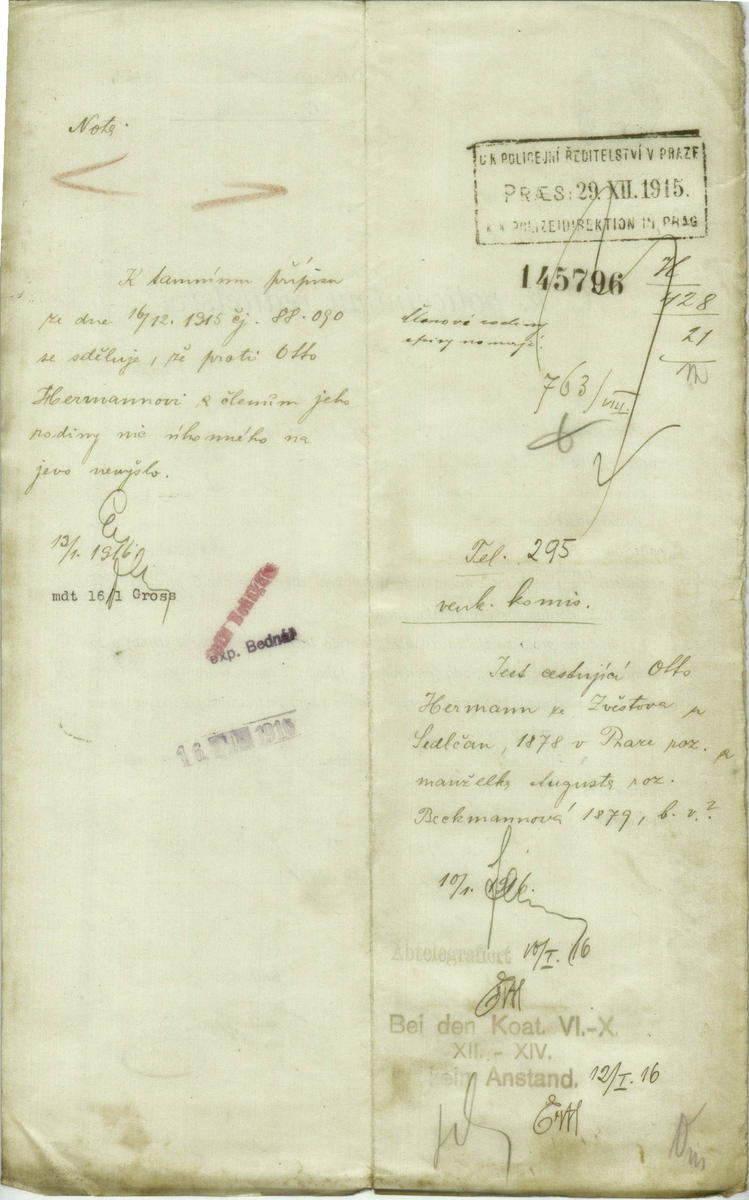 Nota.
K tamnímu přípisu
ze dne 16/12. 1915 čj. 88.090
se sděluje, že proti Otto
Hermannovi a členům jeho
rodiny nic úhonného na
jevo nevyšlo.
13/1. 1916.
mdt 16/1 Gross
exp. Bednář
16. 1916
C.K. POLICEJNÍ ŘEDITELSTVÍ V PRAZE
PRÆS: 29. XII. 1915.
K.K. POLIZEIDIREKTION IN PRAG
145796
H
428
21
Členové rodiny
spisy nemají.
763/VIII.
Tel. 295
venk. komis.
Jest cestující Otto
Hermann ze Zvěstova p
Sedlčan, 1878 v Praze roz. a
manželka Augusta roz.
Beckmannová 1879, b. v.?
10/1. 1916.
Abtelegrafiert 10/I. 16
Bei den Koat. VI.-X.
XII. - XIV.
kein Anstand. 12/I. 16